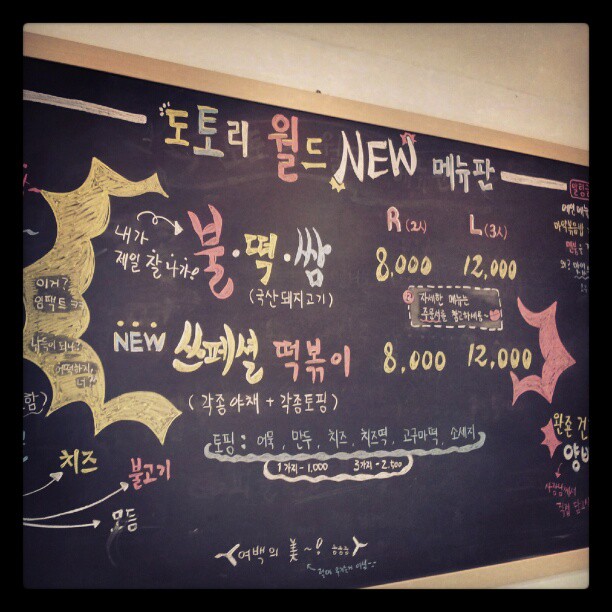 도토리 월드 NEW 메뉴판
내가
제일 잘 나가!
불·떡·쌈
(국산돼지고기)
R(2人) L(3人)
8,000 12,000
자세한 메뉴는
NEW 쓰페셜 떡볶이
8,000 12,000
(각종야채 + 각종토핑)
토핑 : 어묵, 만두, 치즈, 치즈떡, 고구마떡, 소세지
1가지-1,000 3가지-2,500
이거?
임팩트 ㅋㅋ
치즈
불고기
모듬
여백의 美~!
완존
사장님께서
직접